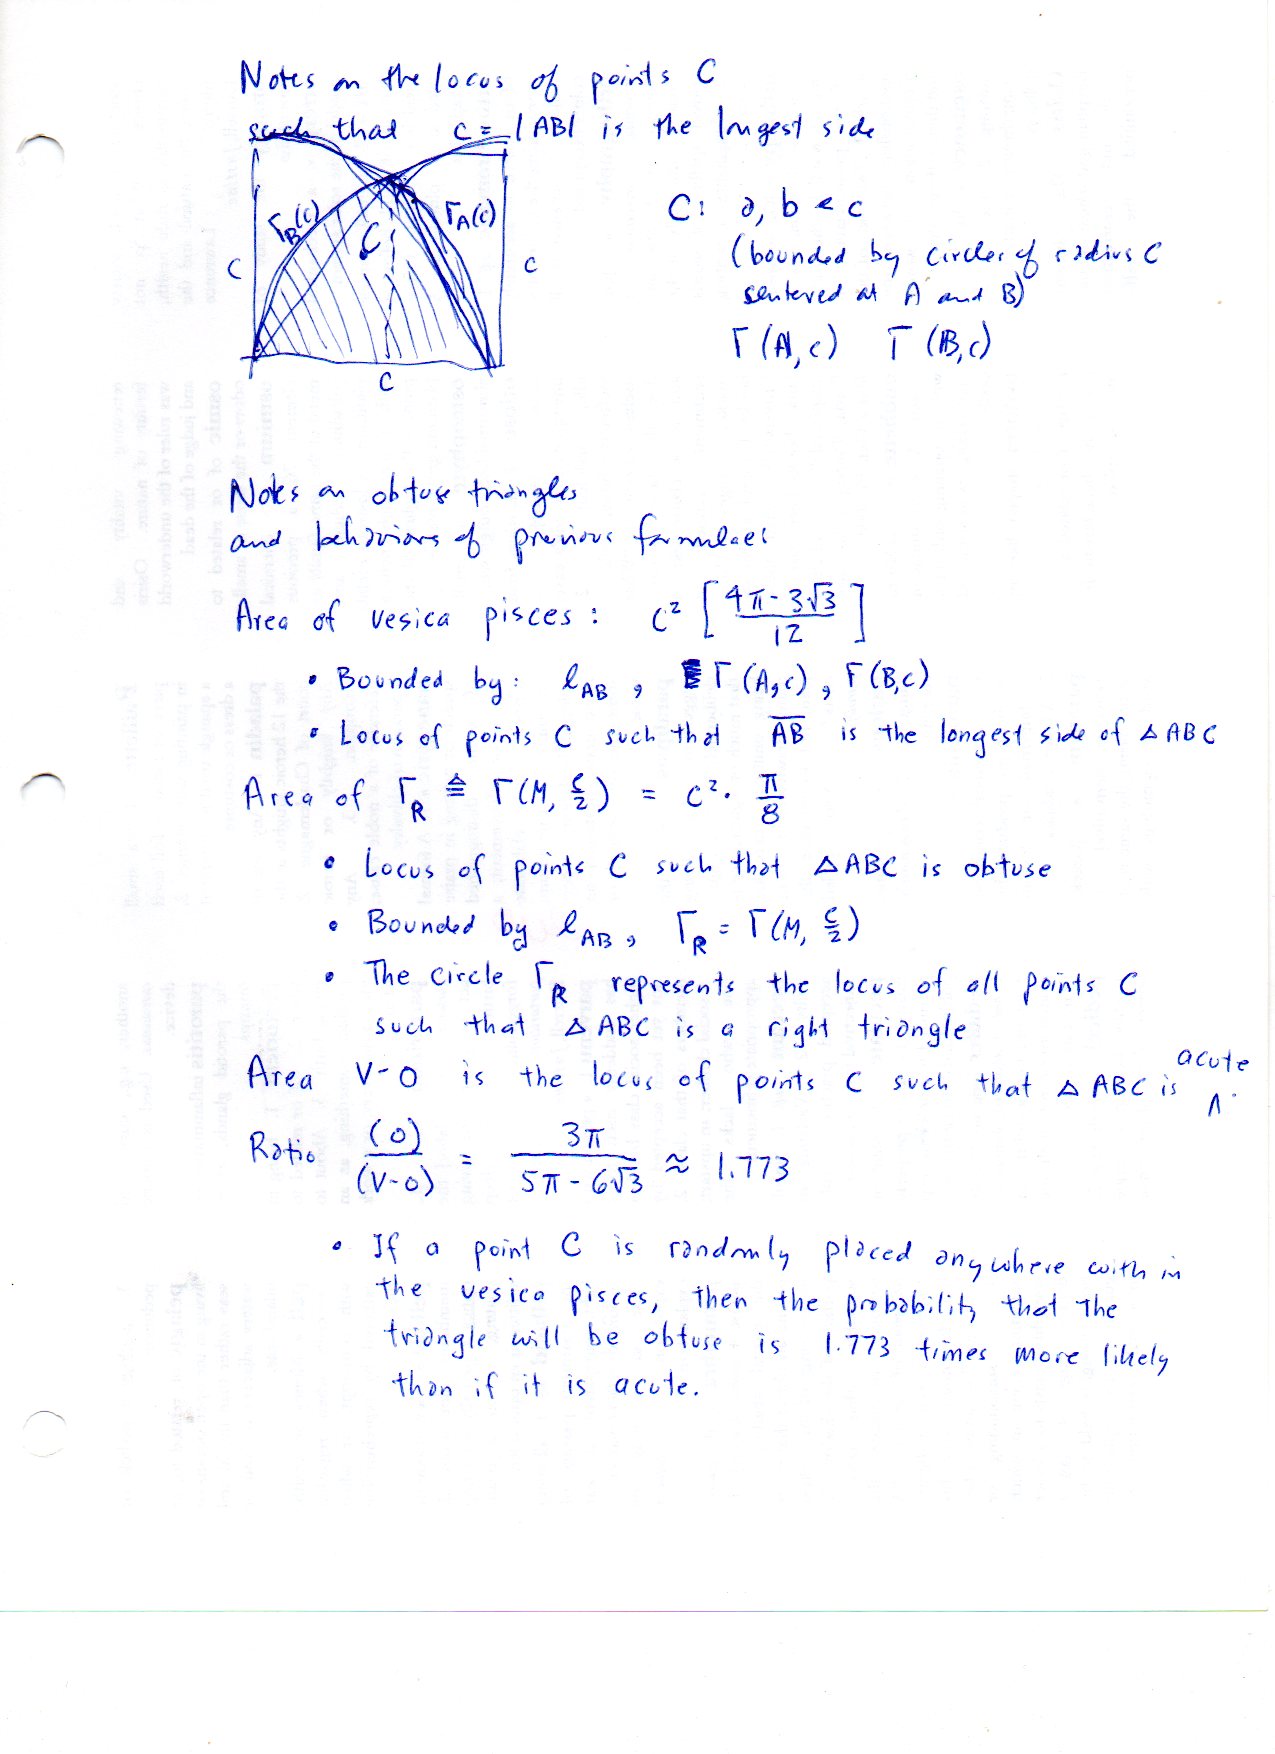 Notes on the locus of points C
such that c = |AB| is the longest side
Γ_B(c)
Γ_A(c)
C
c
c
c
C: a, b < c
(bounded by circles of radius C
sentered at A and B)
Γ(A,c) Γ(B,c)
Notes on obtuse triangles
and behaviors of previous formulae:
Area of vesica pisces: c² [ (4π - 3√3) / 12 ]
• Bounded by: l_AB, Γ(A,c), Γ(B,c)
• Locus of points C such that A̅B̅ is the longest side of △ABC
Area of Γ_R ≙ Γ(M, c/2) = c² · π/8
• Locus of points C such that △ABC is obtuse
• Bounded by l_AB, Γ_R = Γ(M, c/2)
• The circle Γ_R represents the locus of all points C
such that △ABC is a right triangle
Area V-O is the locus of points C such that △ABC is acute.
Ratio (O)/(V-O) = 3π/(5π - 6√3) ≈ 1.773
• If a point C is randomly placed anywhere within
the vesica pisces, then the probability that the
triangle will be obtuse is 1.773 times more likely
than if it is acute.